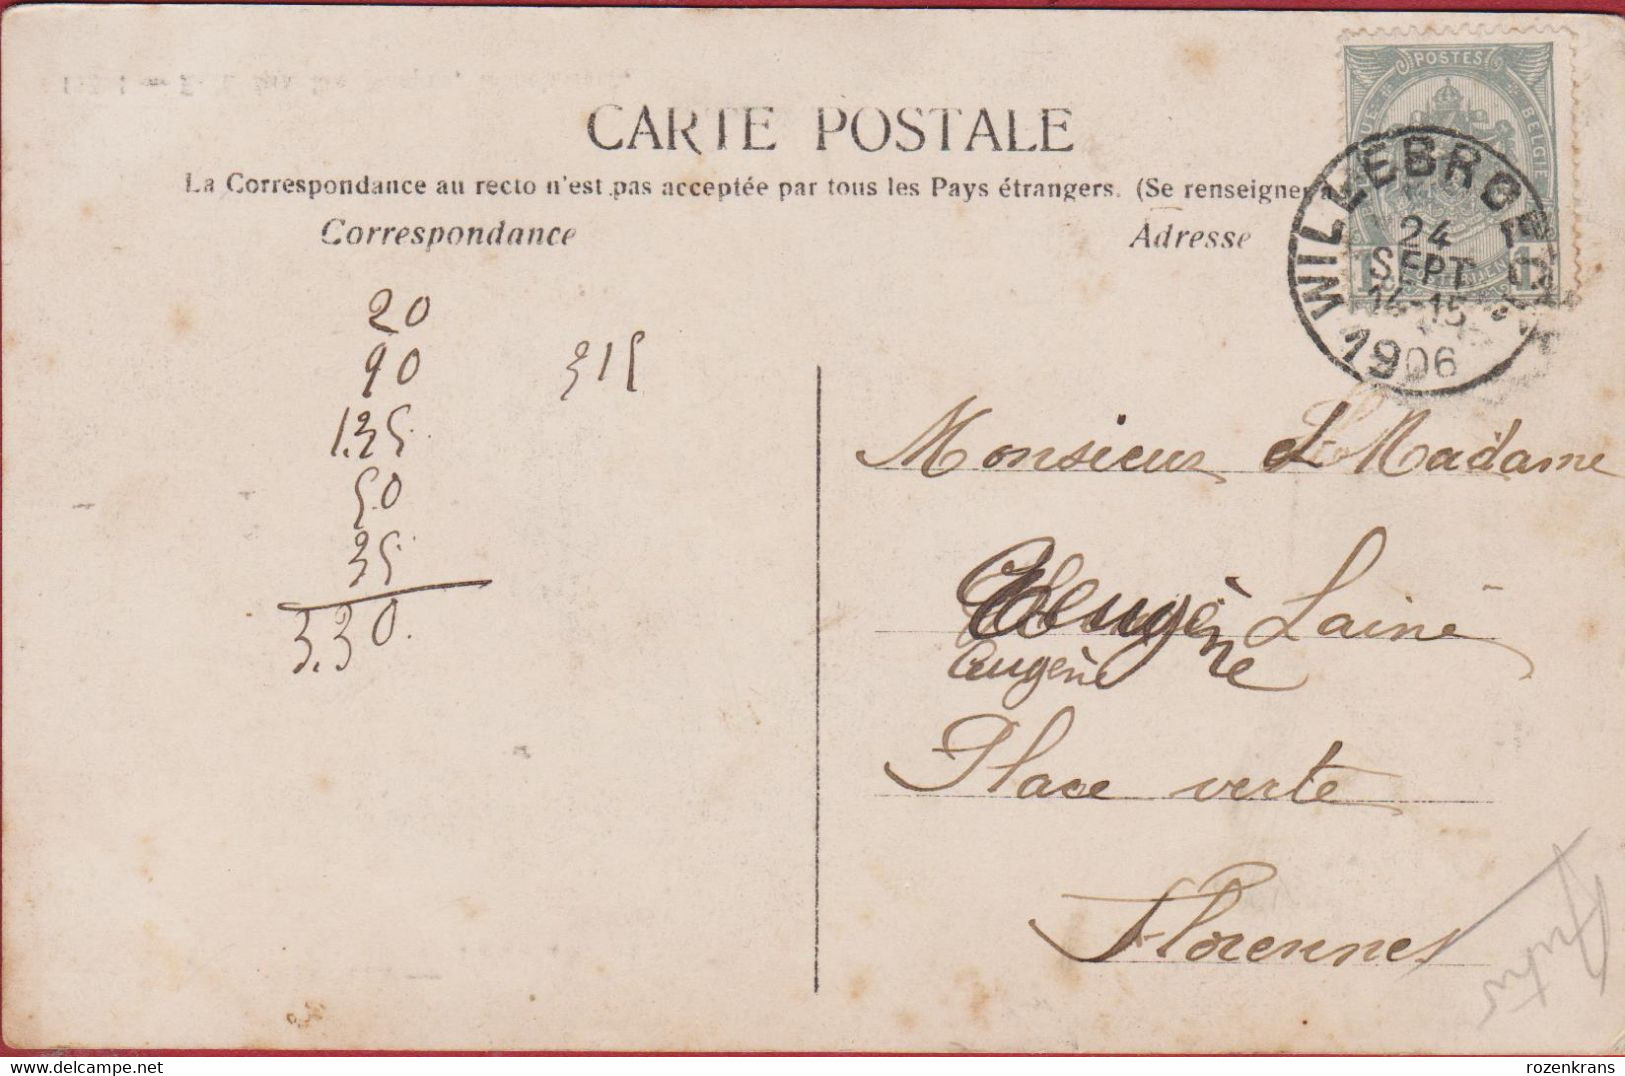 CARTE POSTALE
La Correspondance au recto n'est pas acceptée par tous les Pays étrangers. (Se renseigner à
Correspondance
Adresse
POSTES
BELGIE
WILLEBROECK
24
SEPT
14-15
1906
20
90
1.35
50
35
3.30.
315
Monsieur et Madame
Eugène Lainé
Eugène
Place verte
Florennes
delcampe.net
rozenkrans